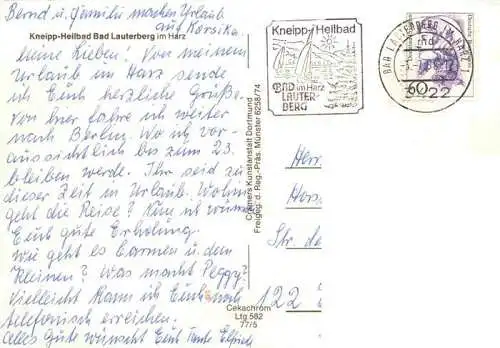 Bernd u. Familie machen Urlaub
auf Korsika.
Kneipp-Heilbad Bad Lauterberg im Harz
Meine Lieben! Von meinem
Urlaub im Harz sende
ich Euch herzliche Grüße.
Von hier fahre ich weiter
nach Berlin. Wo ich vor-
aussichtlich bis zum 23.
bleiben werde. Ihr seid zu
dieser Zeit in Urlaub. Wohin
geht die Reise? Nun ich wünsche
Euch gute Erholung.
Wie geht es Carmen u. dem
Kleinen? Was macht Peggy?
Vielleicht kann ich Euch auch
telefonisch erreichen.
Alles Gute wünscht Euch Tante Elfriede
Cramers Kunstanstalt Dortmund
Freigeg. d. Reg.-Präs. Münster 6258/74
Cekachrom
Lfg 582
77/5
Kneipp-Heilbad
BAD im Harz
LAUTER-
BERG
BAD LAUTERBERG IM HARZ 1
3422
60
Herr
Hors
Str. de
122